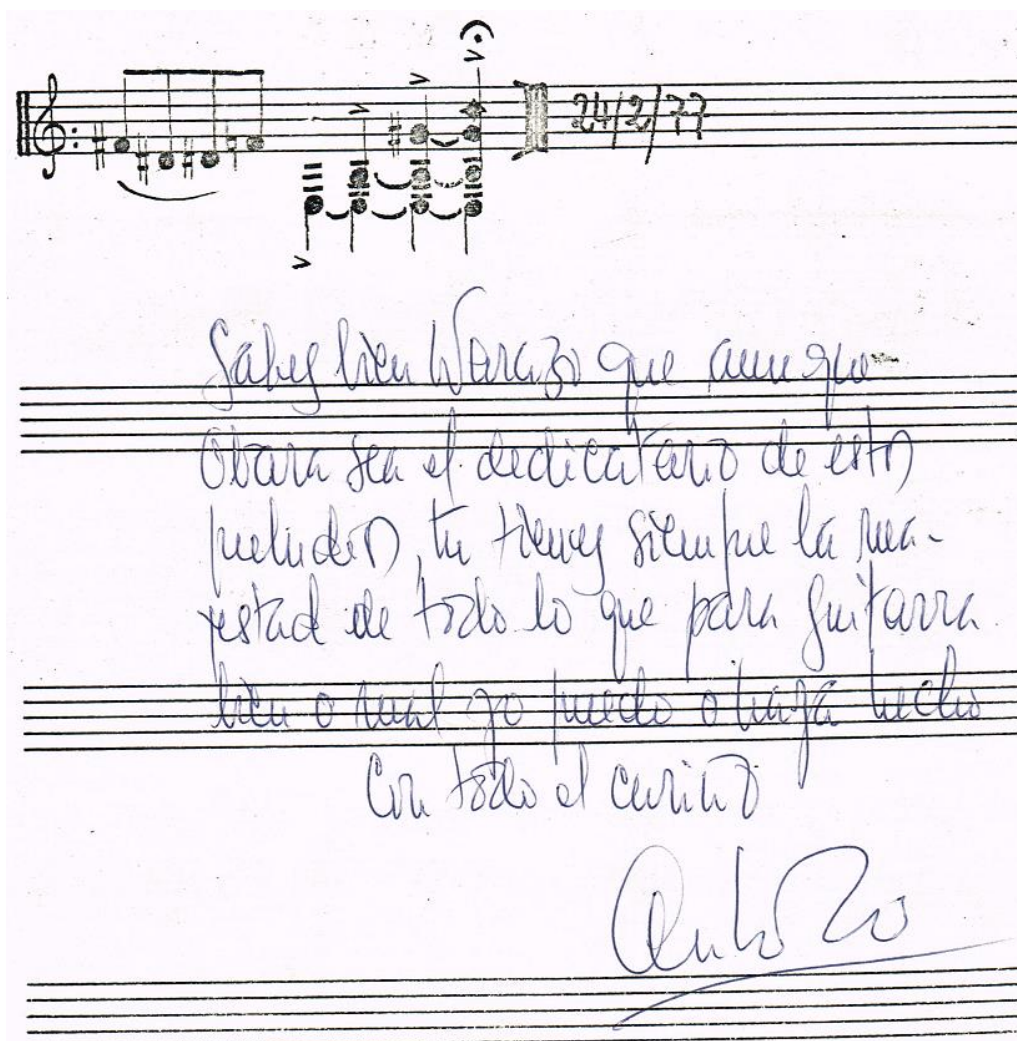 24/2/77
Sabes bien Narciso que aunque
Obara sea el dedicatario de estos
preludios, tu tienes siempre la ma-
jestad de todo lo que para guitarra
bien o mal yo puedo o haya hecho
Con todo el cariño